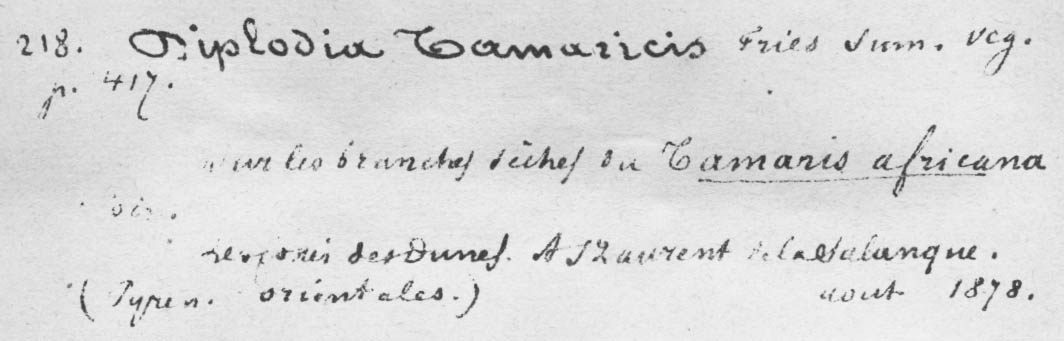 218. Diplodia Tamaricis Fries Sum. veg.
p. 417.
sur les branches sèches du Tamaris africana
des Dunes. A St Laurent de la Salanque.
(Pyren. orientales.) aout 1878.